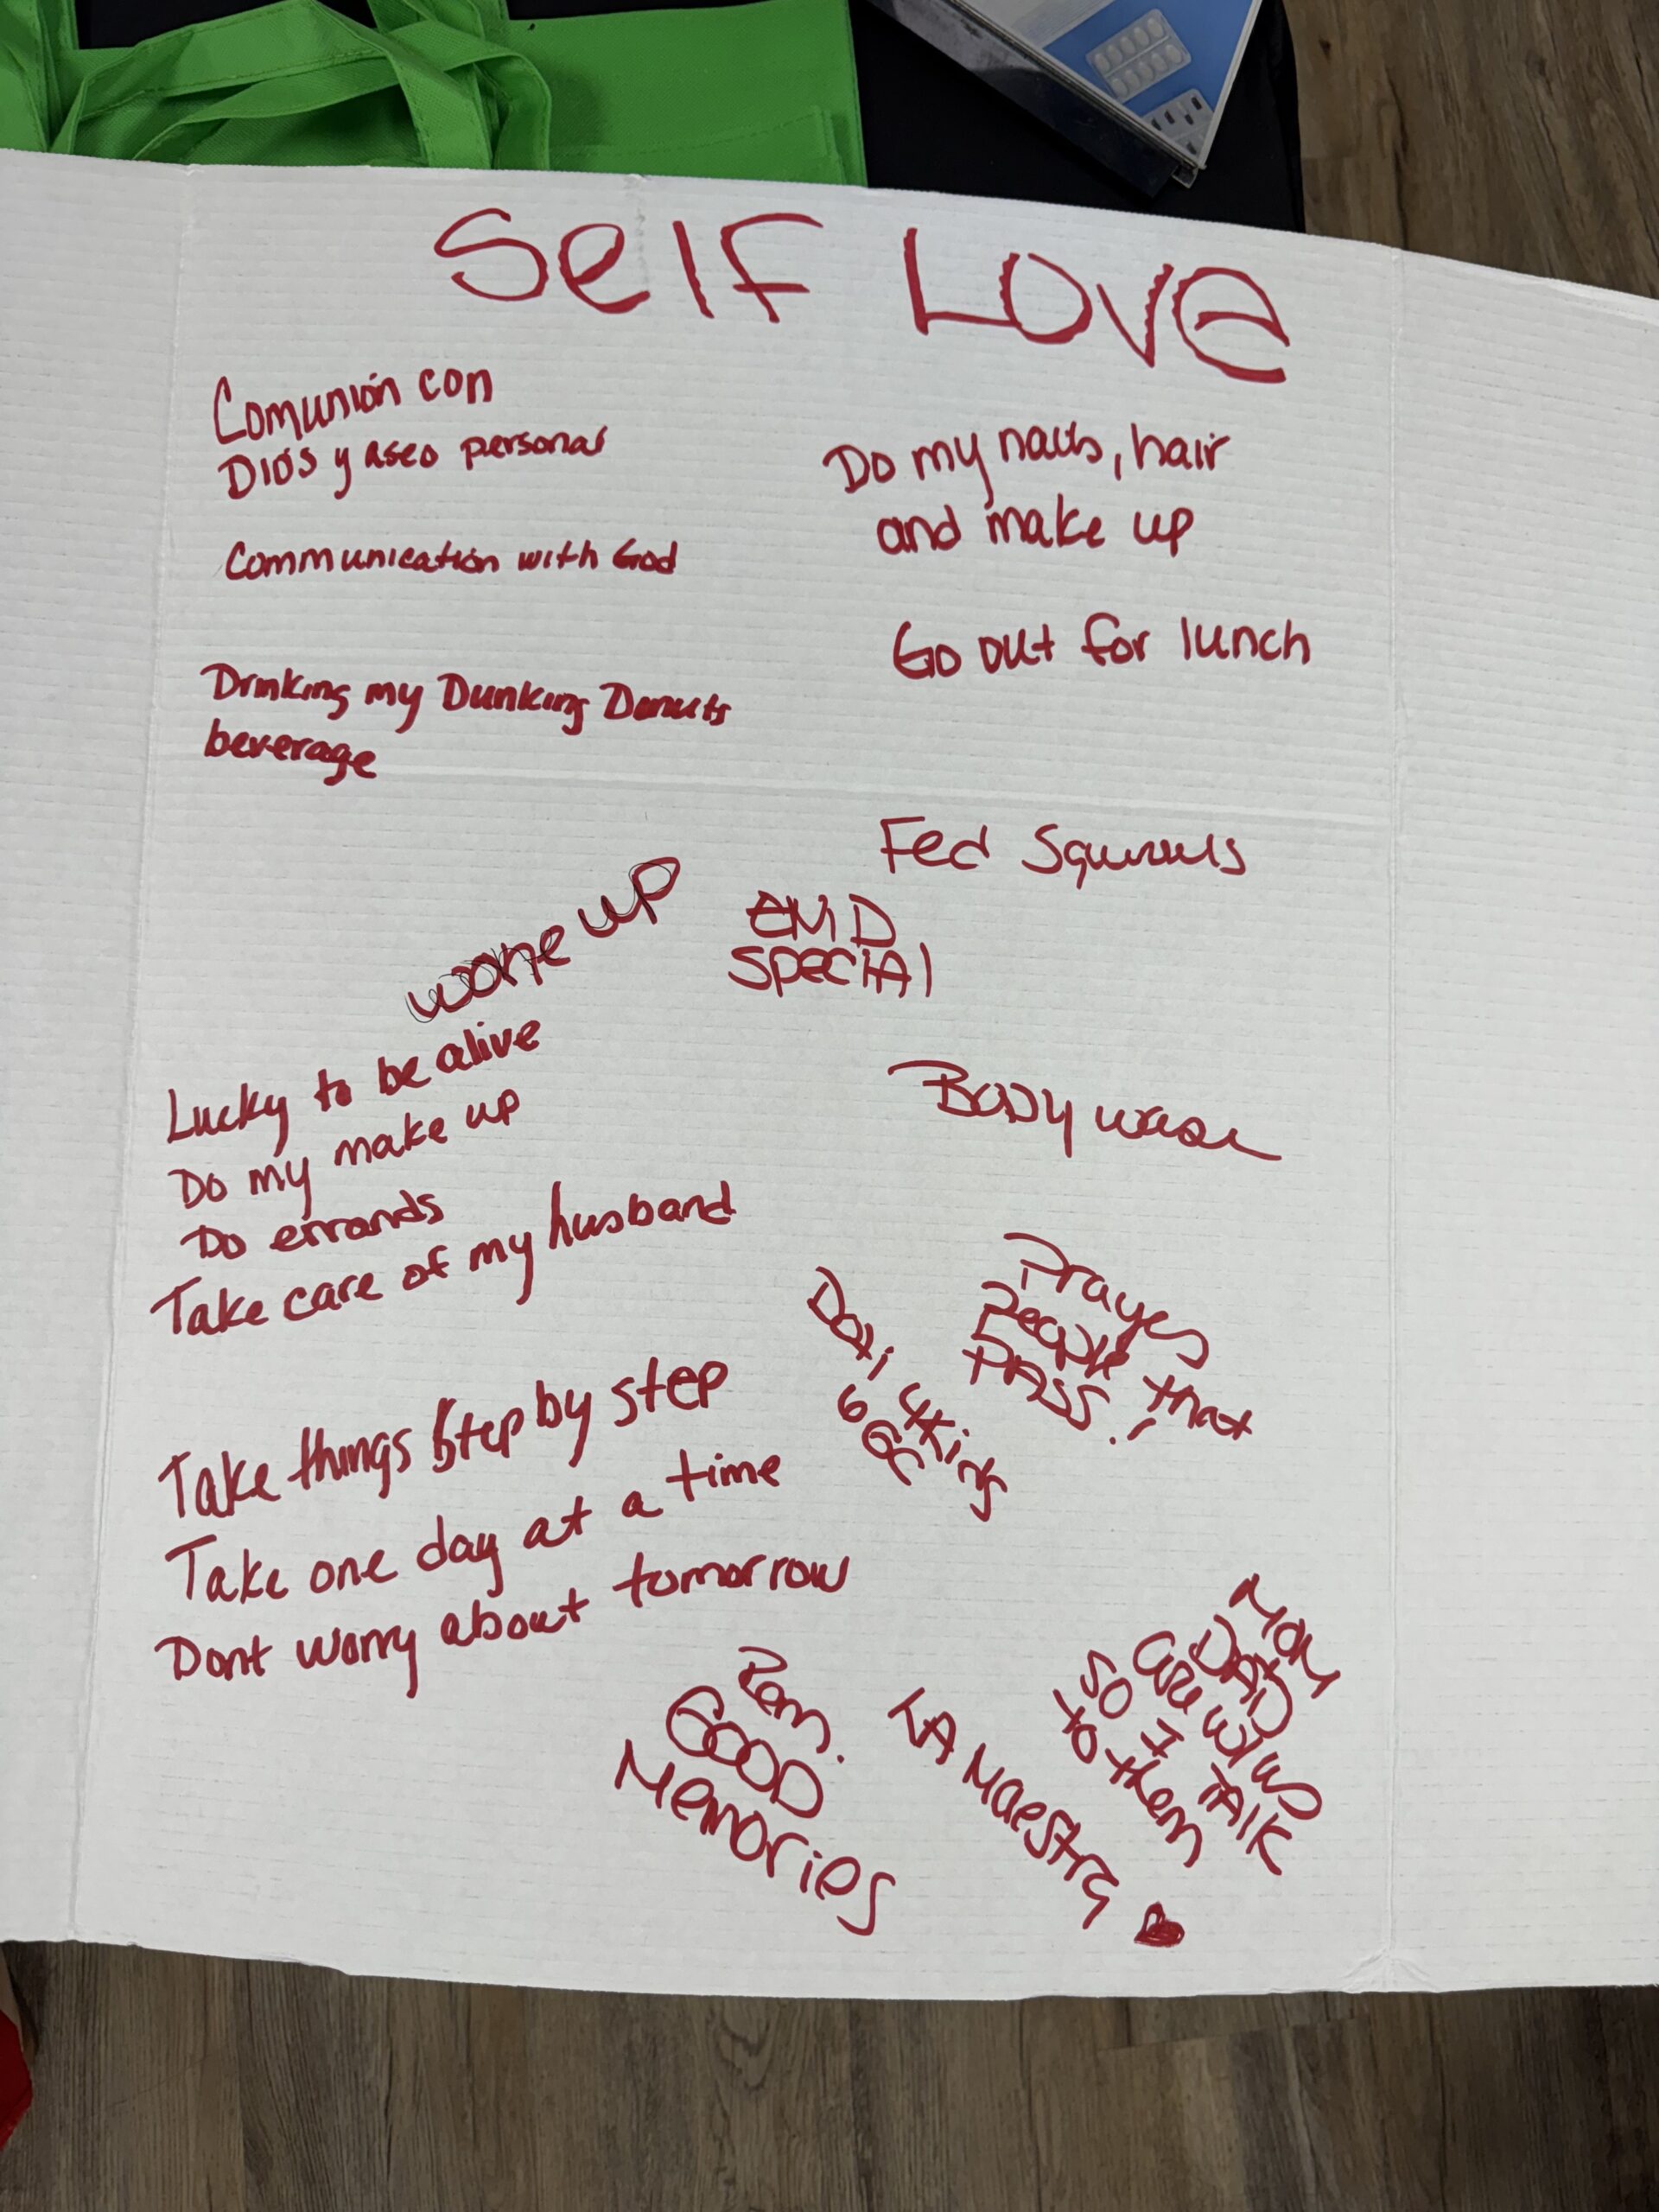 Self Love
Comunión con
Dios y aseo personal
Communication with God
Drinking my Dunking Donuts
beverage
Do my nails, hair
and make up
Go out for lunch
Fed Squirrels
SPECIAL
woke up
Lucky to be alive
Do my make up
Do errands
Take care of my husband
Body wash
Prayes
People that
PASS.!
Take things step by step
Take one day at a time
Dont worry about tomorrow
Rem.
GOOD
Memories
LA Maestra
Mom
DAD
SO I TALK
to them